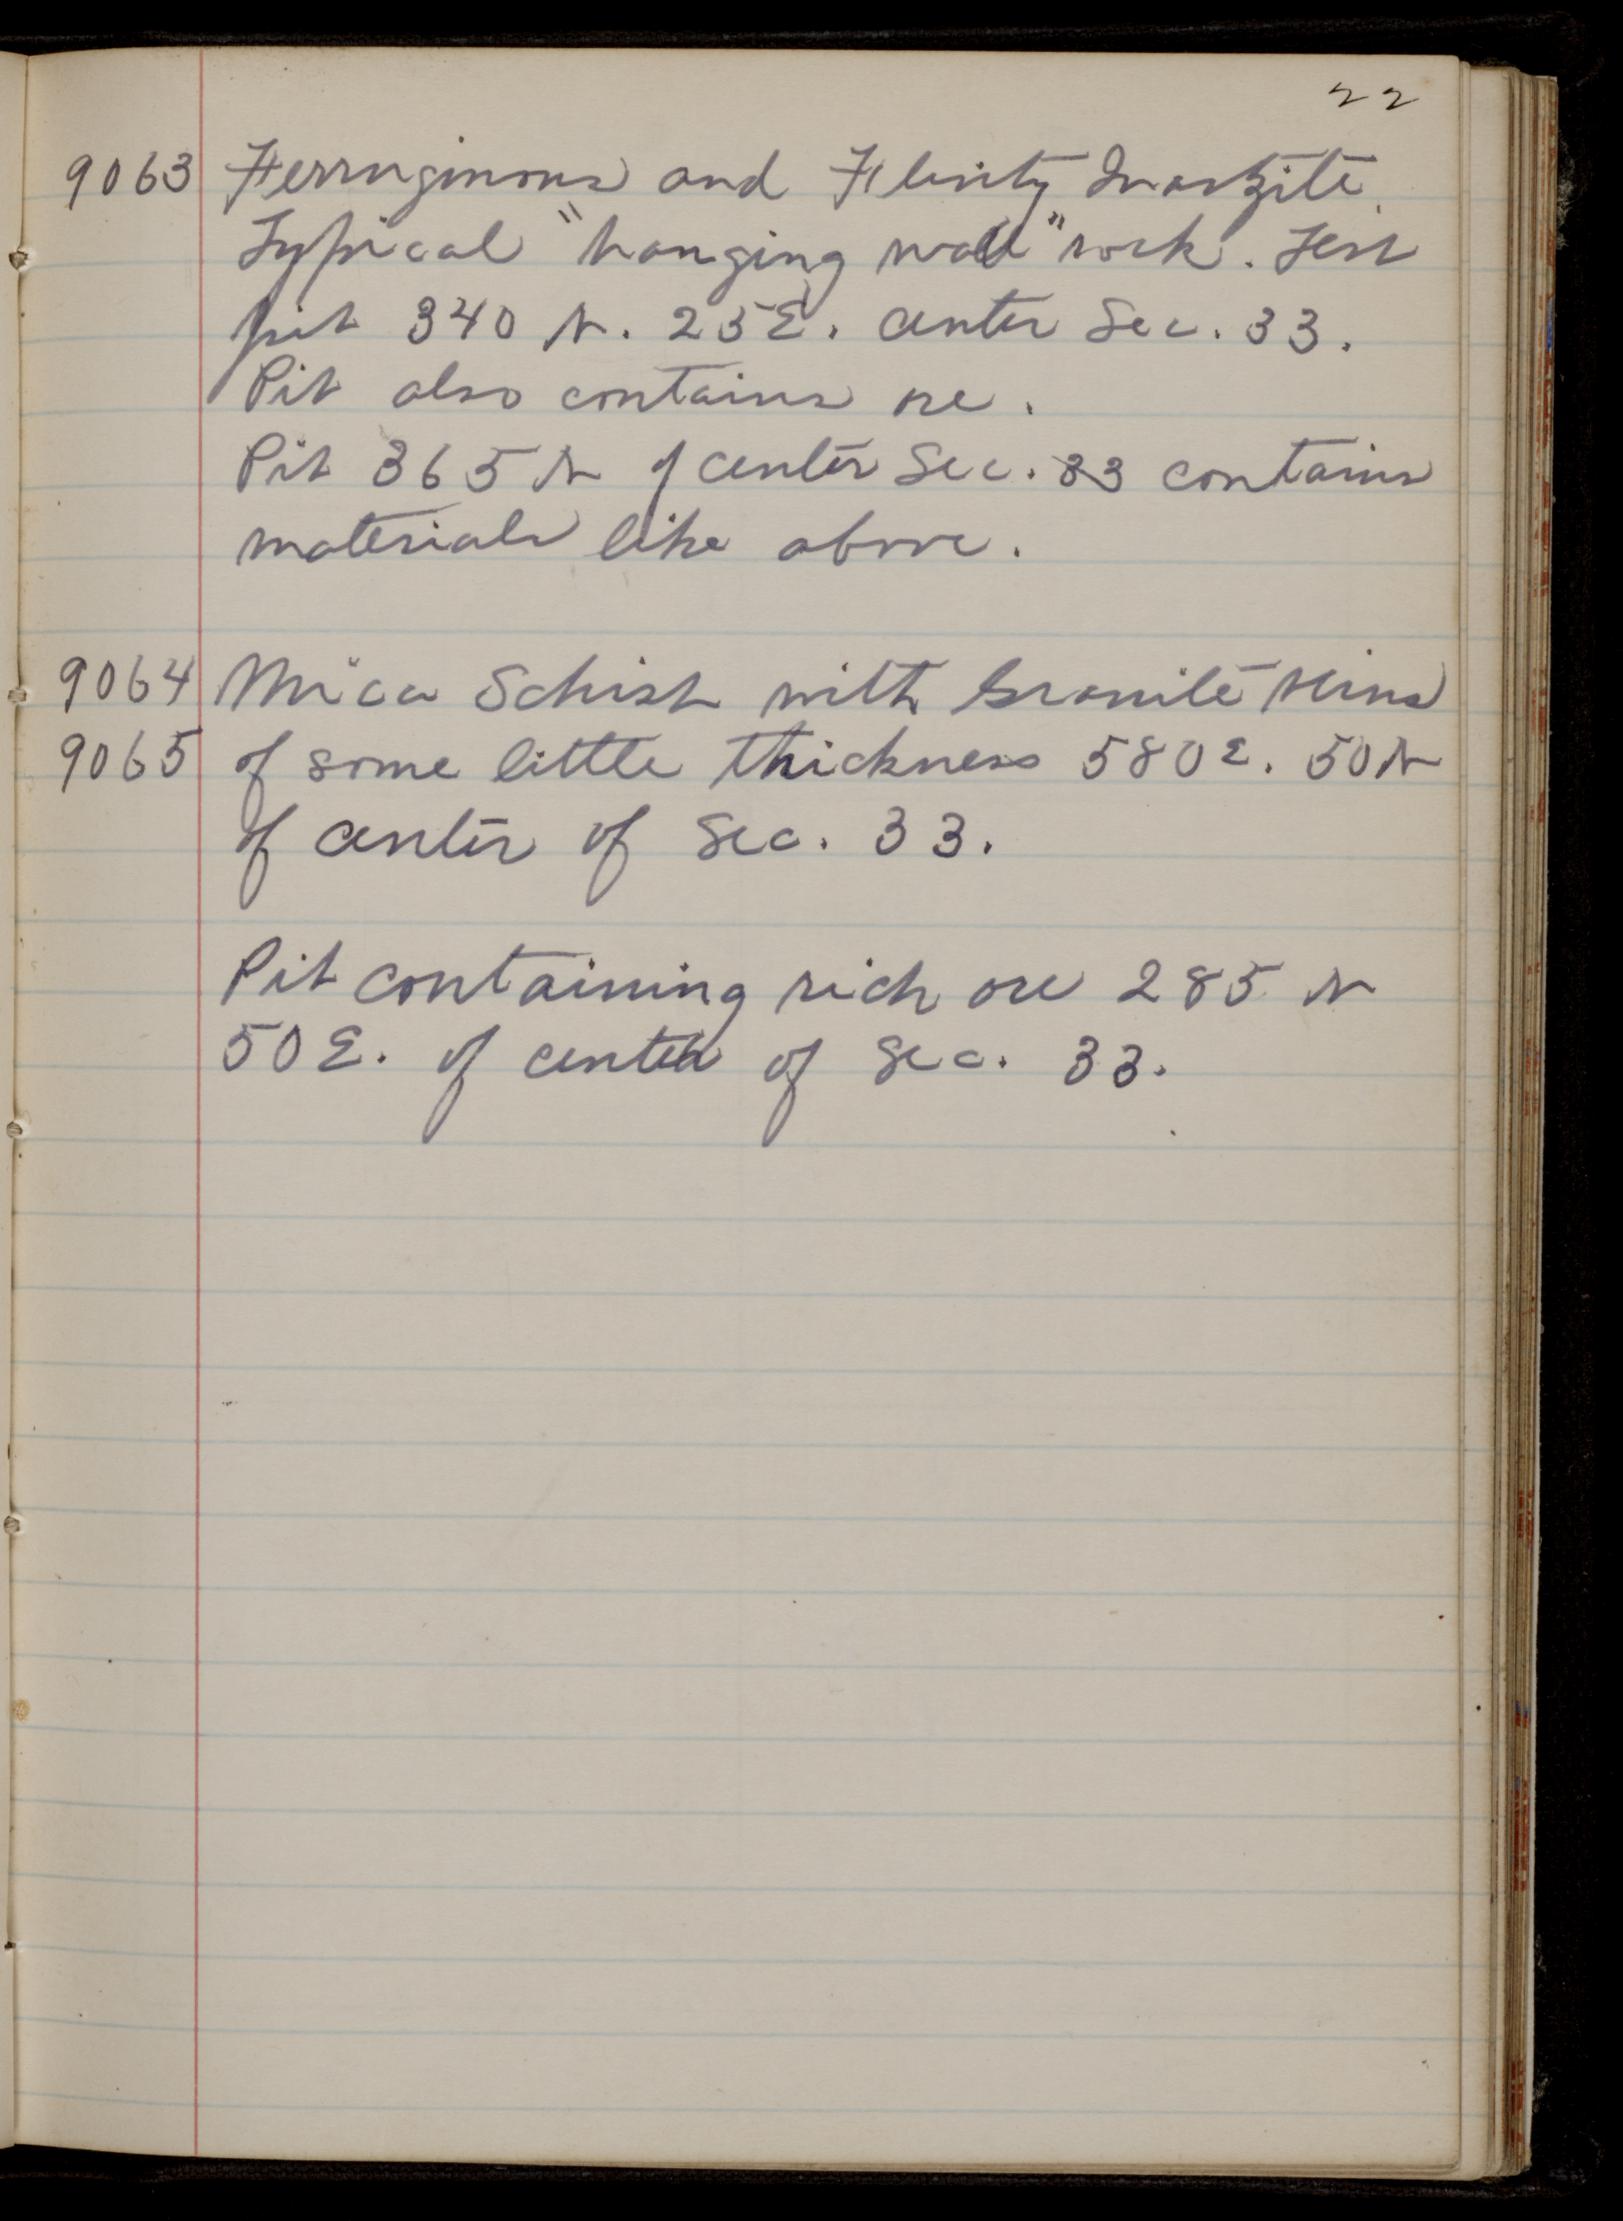 22
9063 Ferruginous and Flinty Quartzite.
Typical "hanging wall" rock. Test
pit 340 N. 25 E. center Sec. 33.
Pit also contains ore.
Pit 365 N of center Sec. 33 contains
materials like above.
9064 Mica Schist with Granite Veins
9065 of some little thickness 580 E. 50 N
of center of Sec. 33.
Pit containing rich ore 285 N
50 E. of center of Sec. 33.